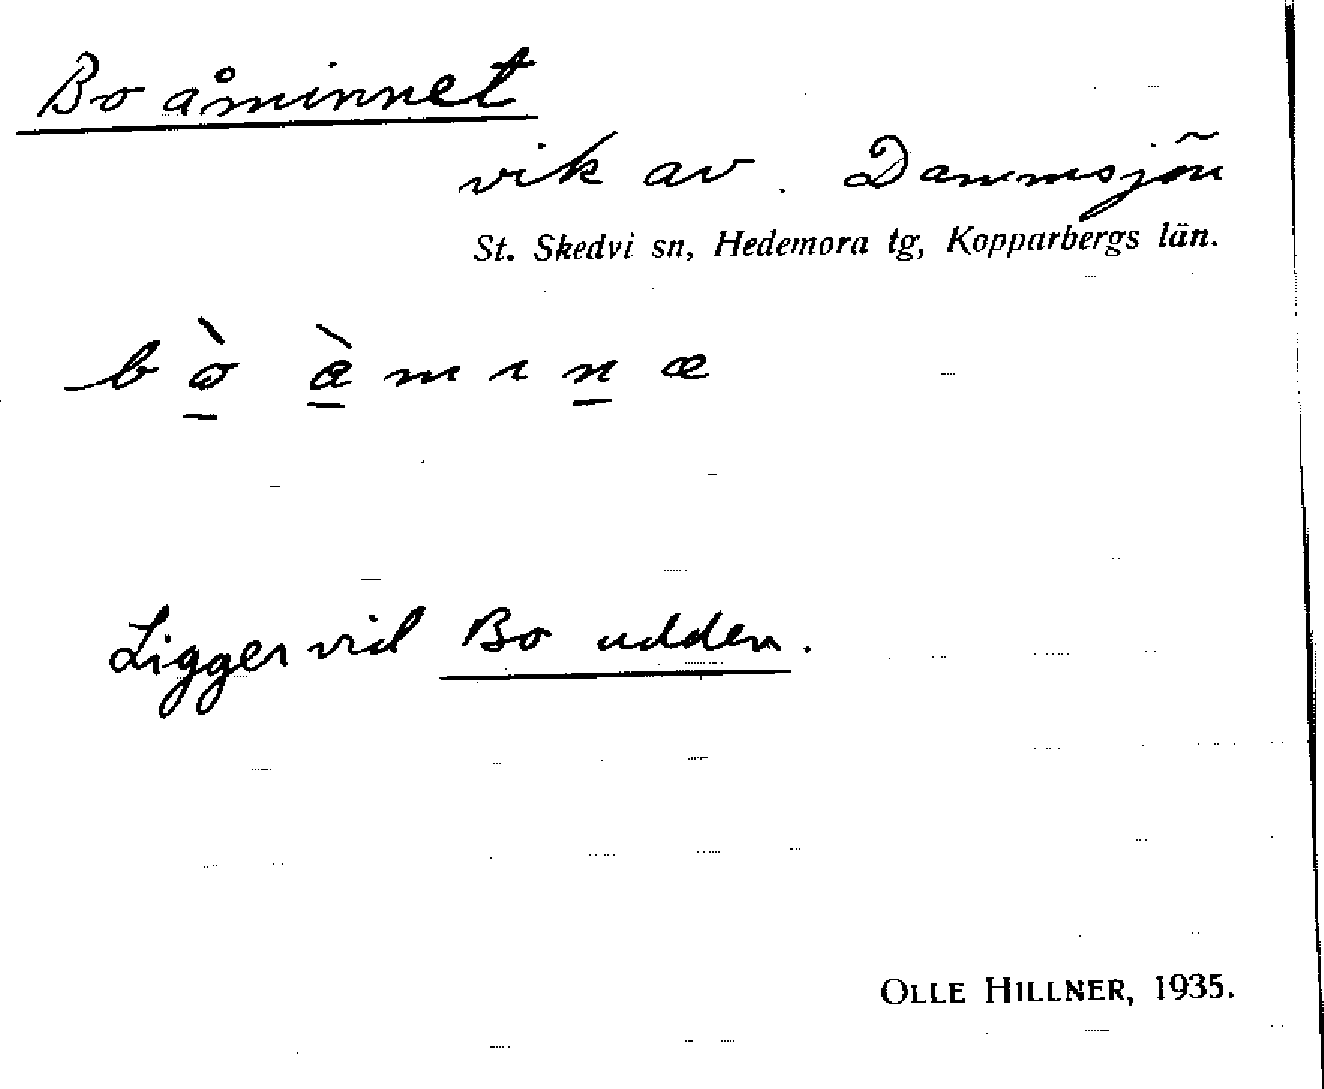 Bo åminnet
vik av. Dammsjön
St. Skedvi sn, Hedemora tg, Kopparbergs län.
Ligger vid Bo udden.
OLLE HILLNER, 1935.